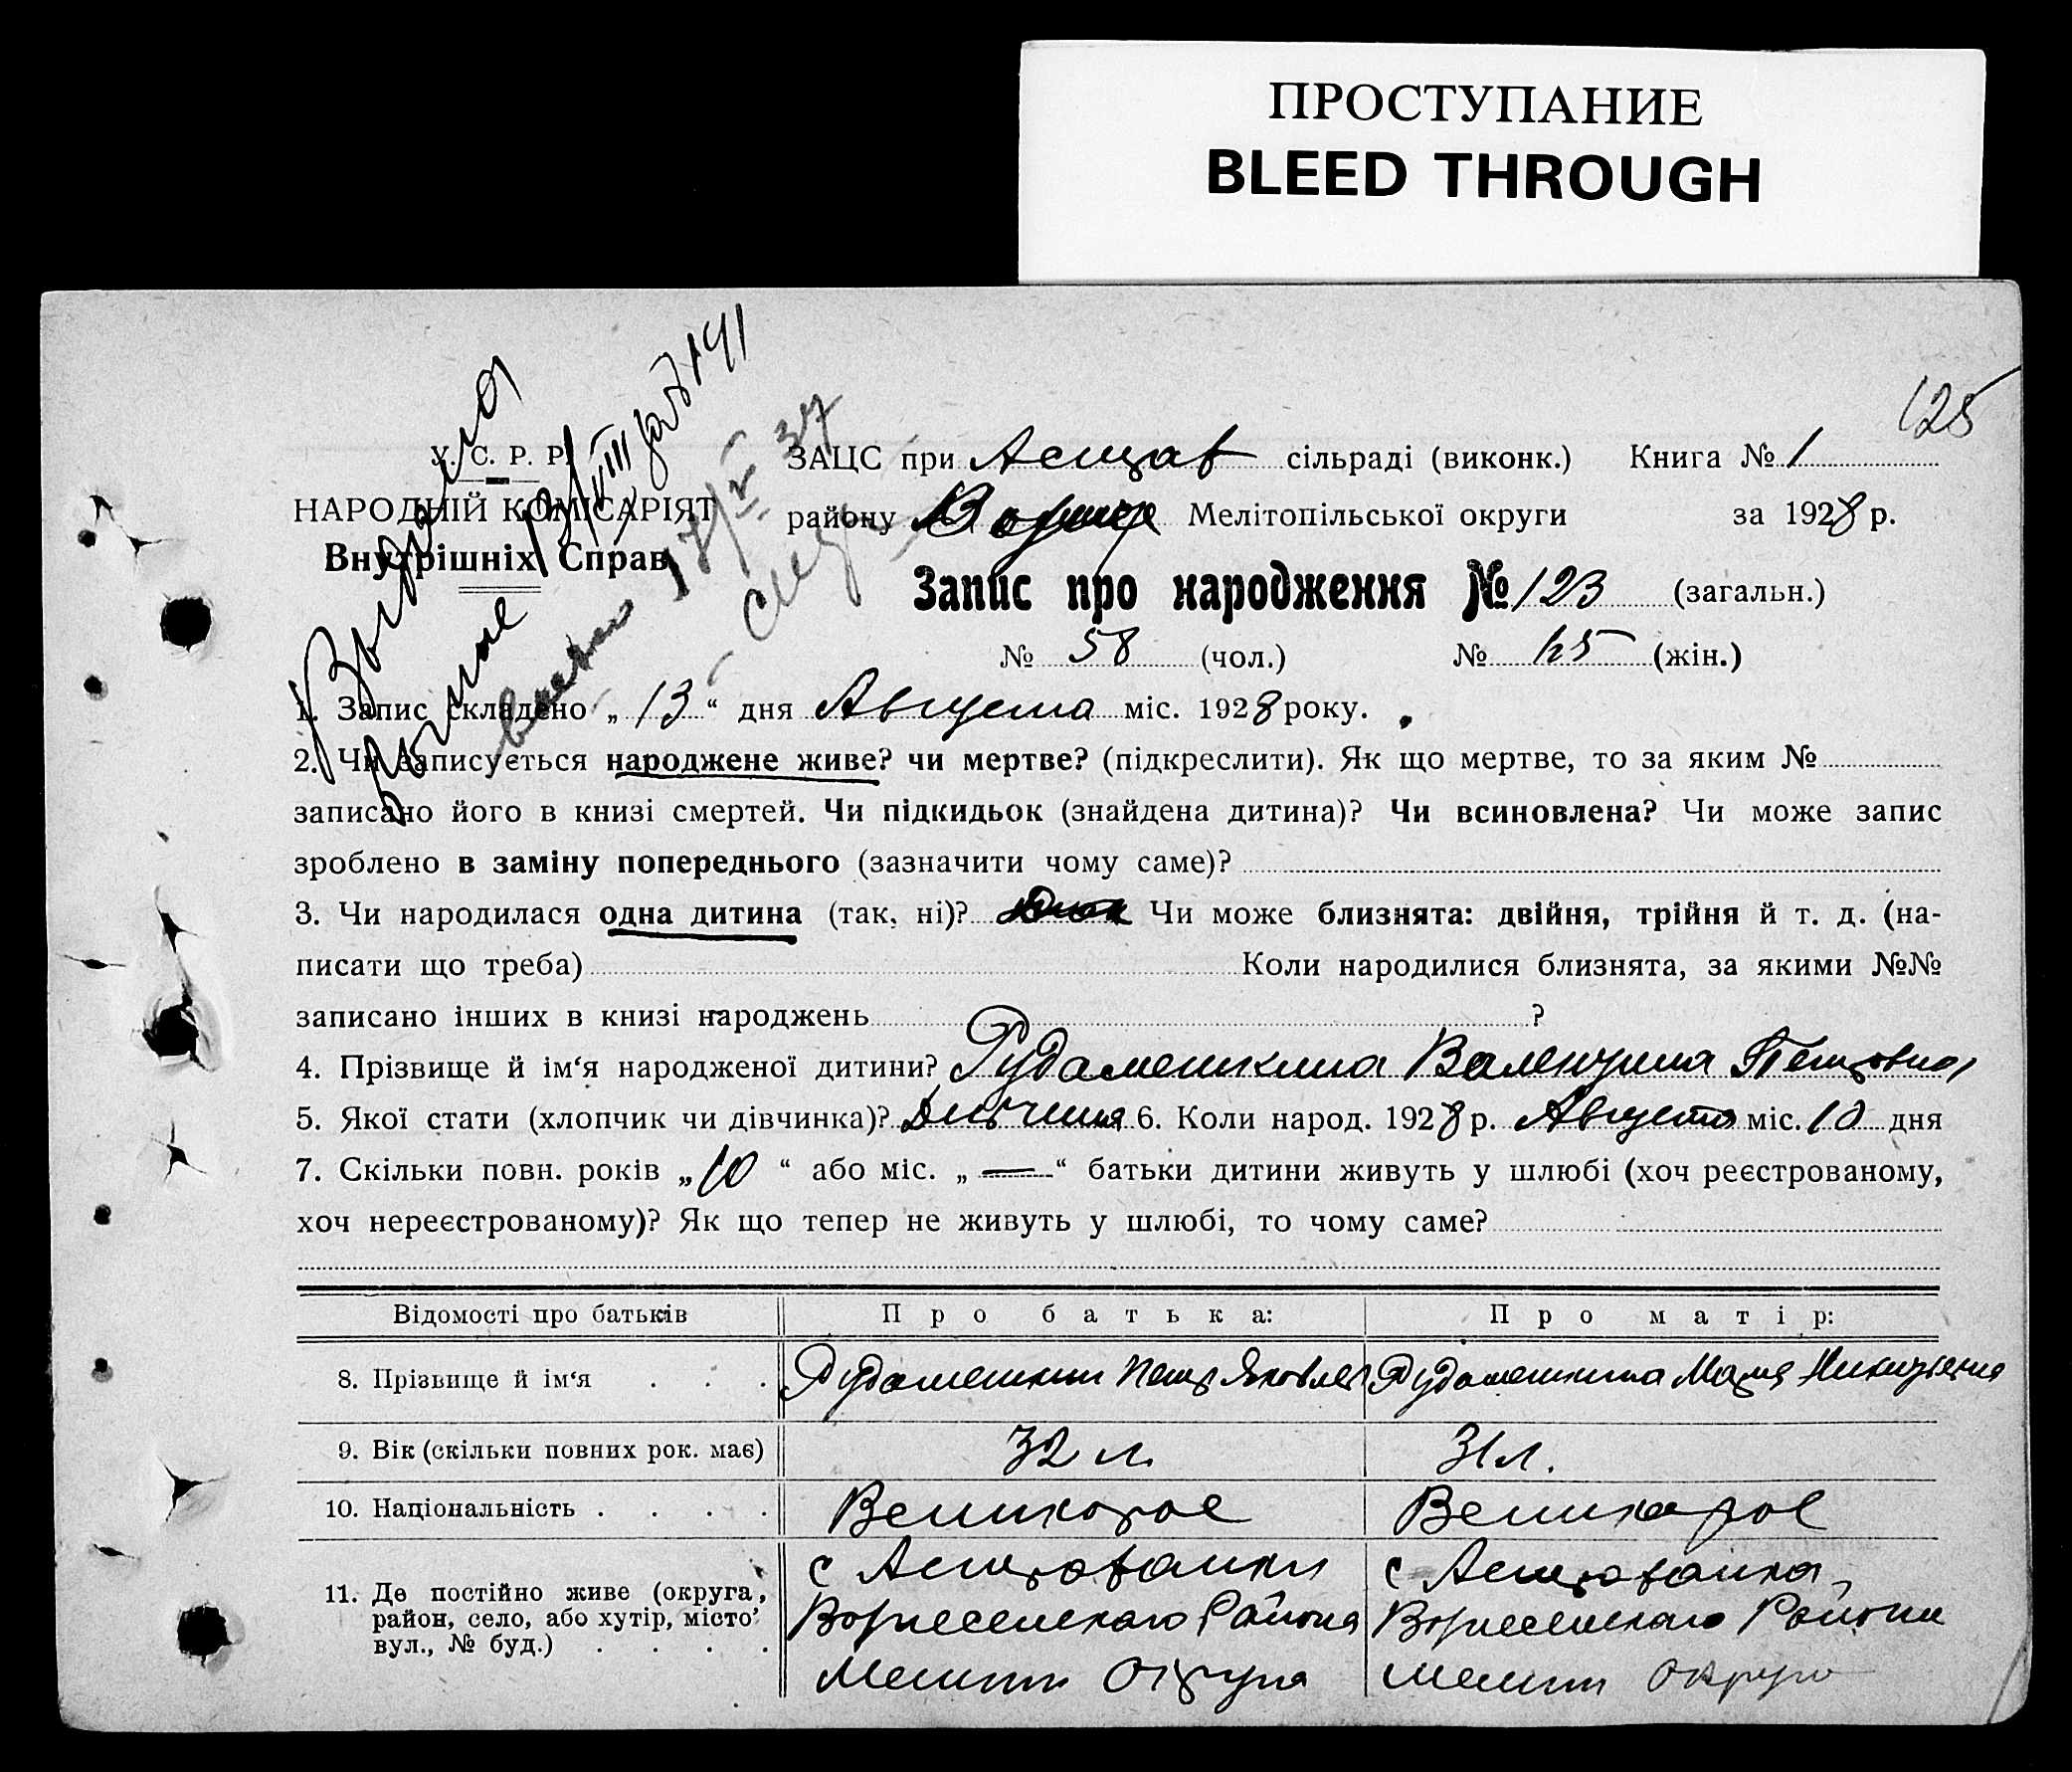 ПРОСТУПАНИЕ
BLEED THROUGH
125
У. С. Р. Р.
НАРОДНІЙ КОМІСАРІЯТ
Внутрішніх Справ
ЗАЦС при Астрав сільраді (виконк.) Книга № 1
району Мелітопільської округи за 1928 р.
Запис про народження № 123 (загальн.)
№ 58 (чол.) № 65 (жін.)
1. Запис складено „ 13 “ дня Августа міс. 1928 року.
2. Чи записується народжене живе? чи мертве? (підкреслити). Як що мертве, то за яким №
записано його в книзі смертей. Чи підкидьок (знайдена дитина)? Чи всиновлена? Чи може запис
зроблено в заміну попереднього (зазначити чому саме)?
3. Чи народилася одна дитина (так, ні)? Чи може близнята: двійня, трійня й т. д. (на-
писати що треба) Коли народилися близнята, за якими №№
записано інших в книзі народжень ?
4. Прізвище й ім‘я народженої дитини? Рудаметкина Валентина Петровна
5. Якої стати (хлопчик чи дівчинка)? 6. Коли народ. 1928 р. Августа міс. 10 дня
7. Скільки повн. років „ 10 “ або міс. „ — “ батьки дитини живуть у шлюбі (хоч реєстрованому,
хоч нереєстрованому)? Як що тепер не живуть у шлюбі, то чому саме?
Відомості про батьків Про батька: Про матір:
8. Прізвище й ім‘я . . . Рудаметкин Петр Яковлев Рудаметкина Мария
9. Вік (скільки повних рок. має) 32 л. 31 л.
10. Національність . . . . Великорос Великарос
11. Де постійно живе (округа, район, село, або хутір, місто вул., № буд.) . . . .
с Астраванки с Астраванка
Вознесенскаго Района Вознесенскаго Района
Мелит Округа Мелит Округа